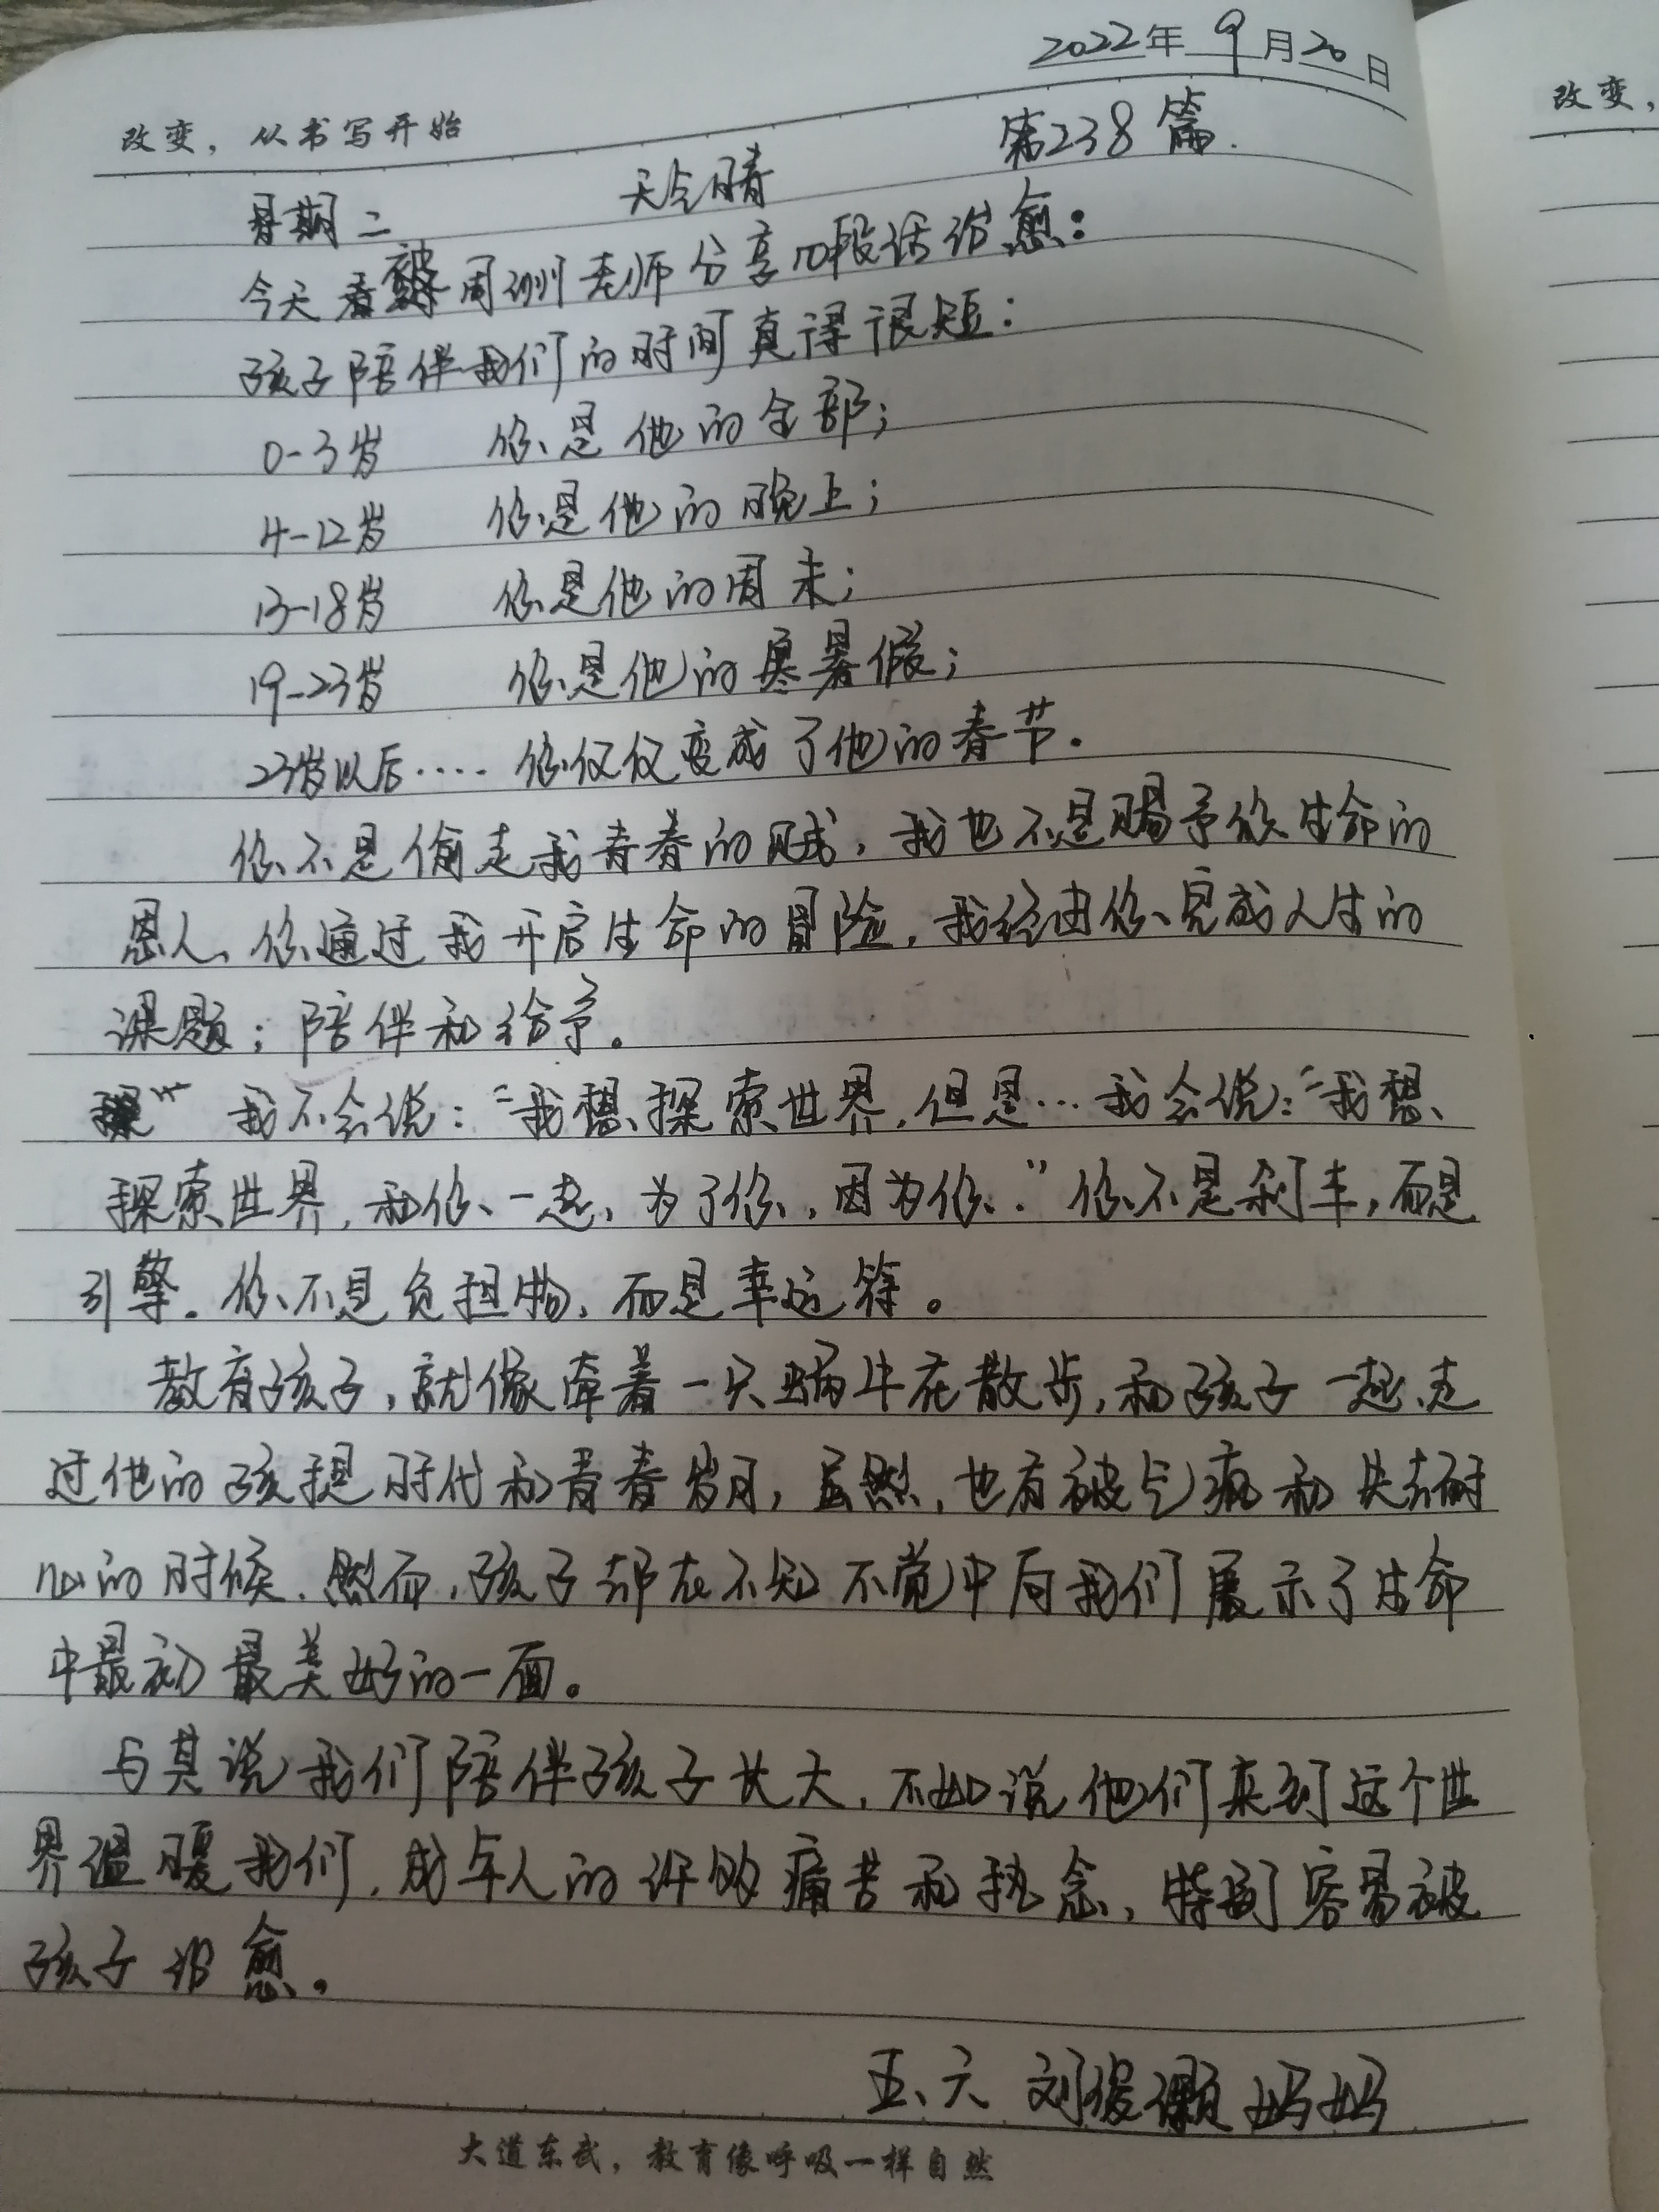 2022年9月20日
改变，从书写开始
改变，
第238篇.
星期二 天气晴
今天看被周训老师分享的段话治愈：
孩子陪伴我们的时间真得很短：
0-3岁 你是他的全部；
4-12岁 你是他的晚上；
13-18岁 你是他的周末；
19-23岁 你是他的寒暑假；
23岁以后..... 你仅仅变成了他的春节.
你不是偷走我青春的贼，我也不是赐予你生命的
恩人、你通过我开启生命的冒险，我经由你完成人生的
课题；陪伴和给予。
我不会说："我想探索世界，但是…我会说："我想
探索世界，和你一起、为了你，因为你."你不是刹车，而是
引擎。你不是负担物，而是幸运符。
教育孩子，就像牵着一只蜗牛在散步，和孩子一起走
过他的孩提时代和青春岁月，虽然，也有被气疯和失去耐
心的时候.然而，孩子却在不知不觉中向我们展示了生命
中最初最美好的一面。
与其说我们陪伴孩子长大，不如说他们来到这个世
界温暖我们，成年人的许多痛苦和执念、特别容易被
孩子治愈。
五、六 刘俊灏妈妈
大道东武，教育像呼吸一样自然